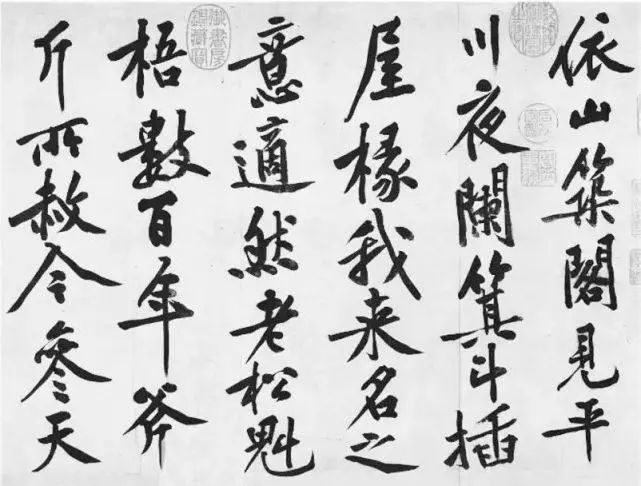 依山築閣見平
川夜闌箕斗插
屋椽我来名之
意適然老松魁
梧數百年斧
斤所赦今參天